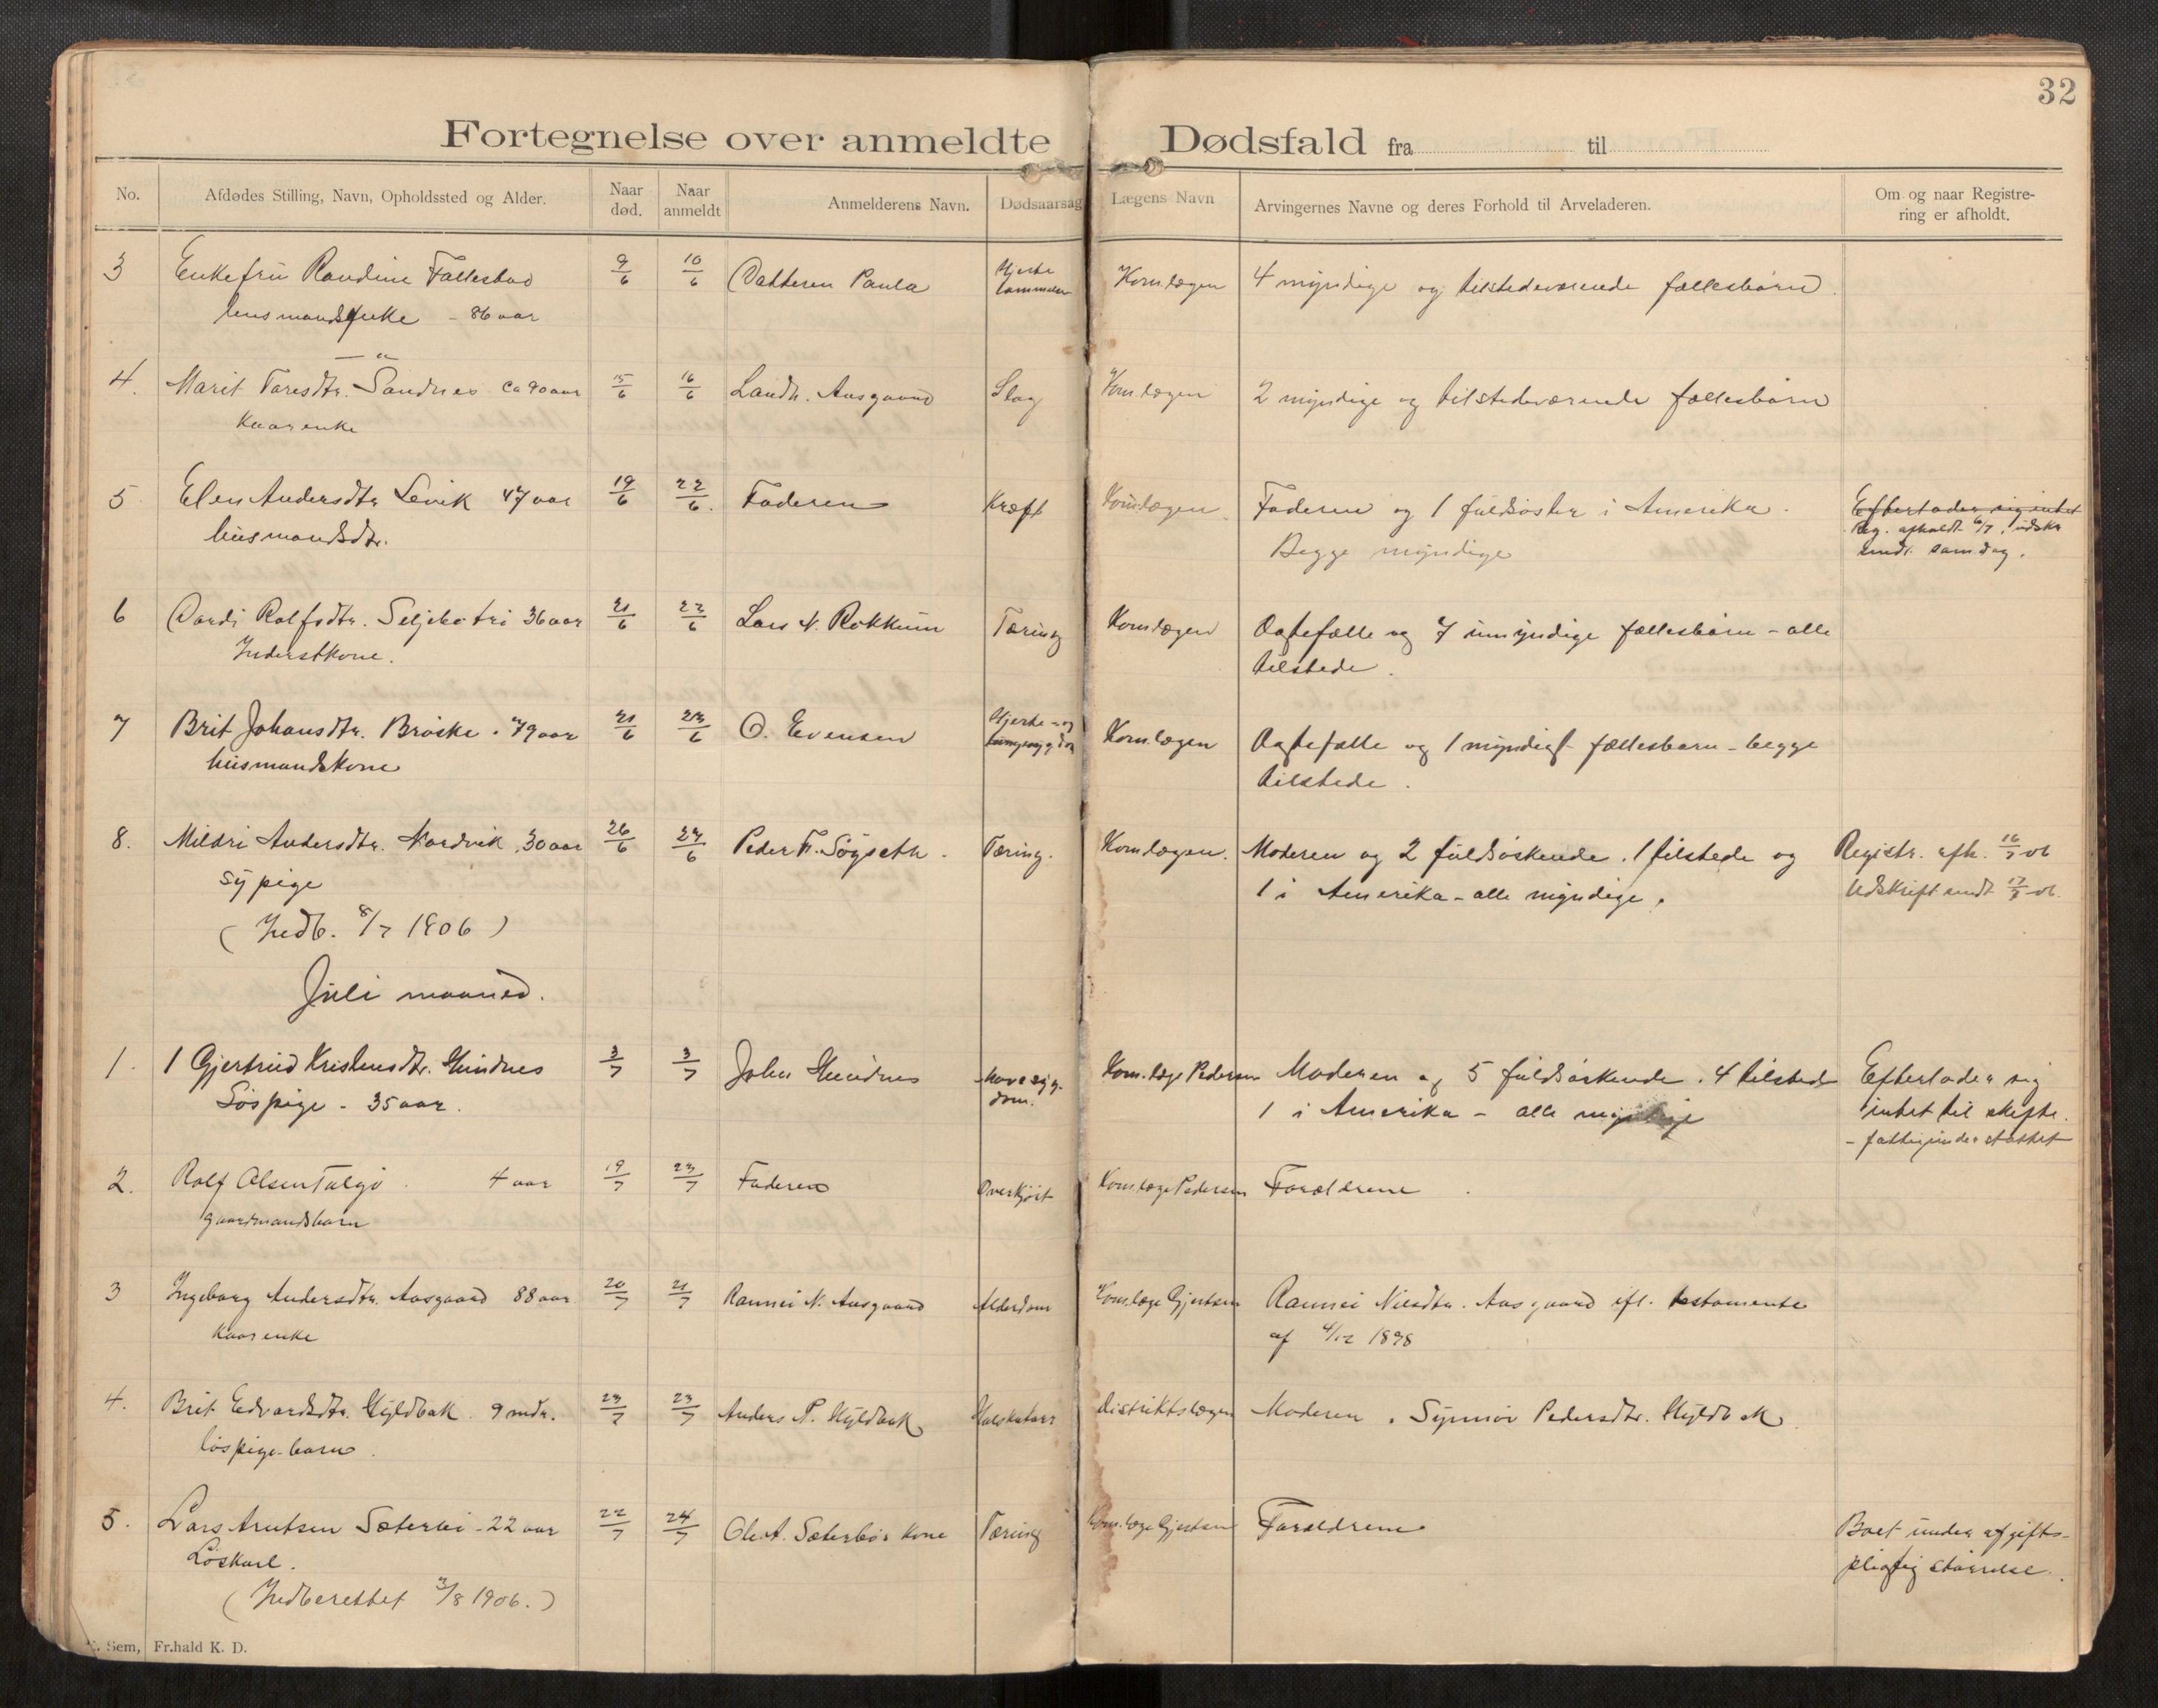 32
Fortegnelse over anmeldte Dødsfald fra til
No. Afdødes Stilling, Navn, Opholdssted og Alder. Naar død. Naar anmeldt Anmelderens Navn. Dødsaarsag Lægens Navn Arvingernes Navne og deres Forhold til Arveladeren. Om og naar Registrering er afholdt.
3 Enkefru Randine Fallestad 9/6 10/6 Datteren Paula Hjerte lammelse Kom.lægen 4 myndige og tilstedeværende fællesbørn.
husmandsenke - 86 aar
4. Marit Taresdtr. Sandnes ca 90 aar 15/6 16/6 Landh. Aasgaard Slag Kom.lægen 2 myndige og tilstedeværende fællesbørn
Kaarenke
5 Elen Andersdtr. Levik 47 aar 19/6 22/6. Faderen Kræft Kom.lægen. Faderen og 1 fuldsøster i Amerika. Efterlader sig intet
husmandsdtr. Begge myndige Reg. afholdt 6/7, udskr. sendt sam. dag.
6 Dordi Rolfsdtr. Seljebotri 36 aar 21/6 22/6 Lars N. Rokkum Tæring Kom.lægen Ægtefælle og 7 umyndige fællesbørn - alle
Inderstkone. tilstede.
7 Brit Johansdtr. Brøske - 79 aar 21/6 23/6 O. Evensen Hjerte- og lungesygdom Kom.lægen Ægtefælle og 1 myndigt fællesbarn - begge
husmandskone tilstede.
8. Mildri Andersdtr. Nordvik, 30 aar 26/6 27/6 Peder F. Søgseth. Tæring. Kom.lægen. Moderen og 2 fuldsøskende. 1 tilstede og Registr. afh. 16/7 06
sypige 1 i Amerika - alle myndige. Udskrift sendt 17/7 06.
(Indb. 8/7 1906)
Juli maaned.
1. 1 Gjertrud Kristensdtr. Hindnes 3/7 3/7 John Hindnes Mavesygdom. Kom.læge Pedersen Moderen og 5 fuldsøskende. 4 tilstede Efterlader sig
Løspige - 35 aar. 1 i Amerika - alle myndige intet til skifte.
- fattigunderstøttet
2. Rolf Olsen Talgø. 4 aar 19/7 23/7 Faderen Overkjørt Kom.læge Pedersen Forældrene.
gaardmandsbarn
3 Ingeborg Andersdtr. Aasgaard 88 aar 20/7 21/7 Rannei N. Aasgaard Alderdom Kom.læge Gjertsen Rannei Nilsdtr. Aasgaard ifl. testamente
Kaarenke af 4/12 1898
4. Brit Edvardsdtr. Hyldbak. 9 mdr. 23/7 23/7 Anders P. Hyldbak Halskatarr distriktslægen Moderen. Synnøv Pedersdtr. Hyldbak.
løspige-barn.
5. Lars Arntsen Sæterbø - 22 aar 22/7 24/7 Ole A. Sæterbøs kone Tæring Kom.læge Gjertsen Forældrene Boet under afgifts-
Løskarl. pligtig størrelse.
(Indberettet 3/8 1906.)
Sem, Fr.hald K. D.